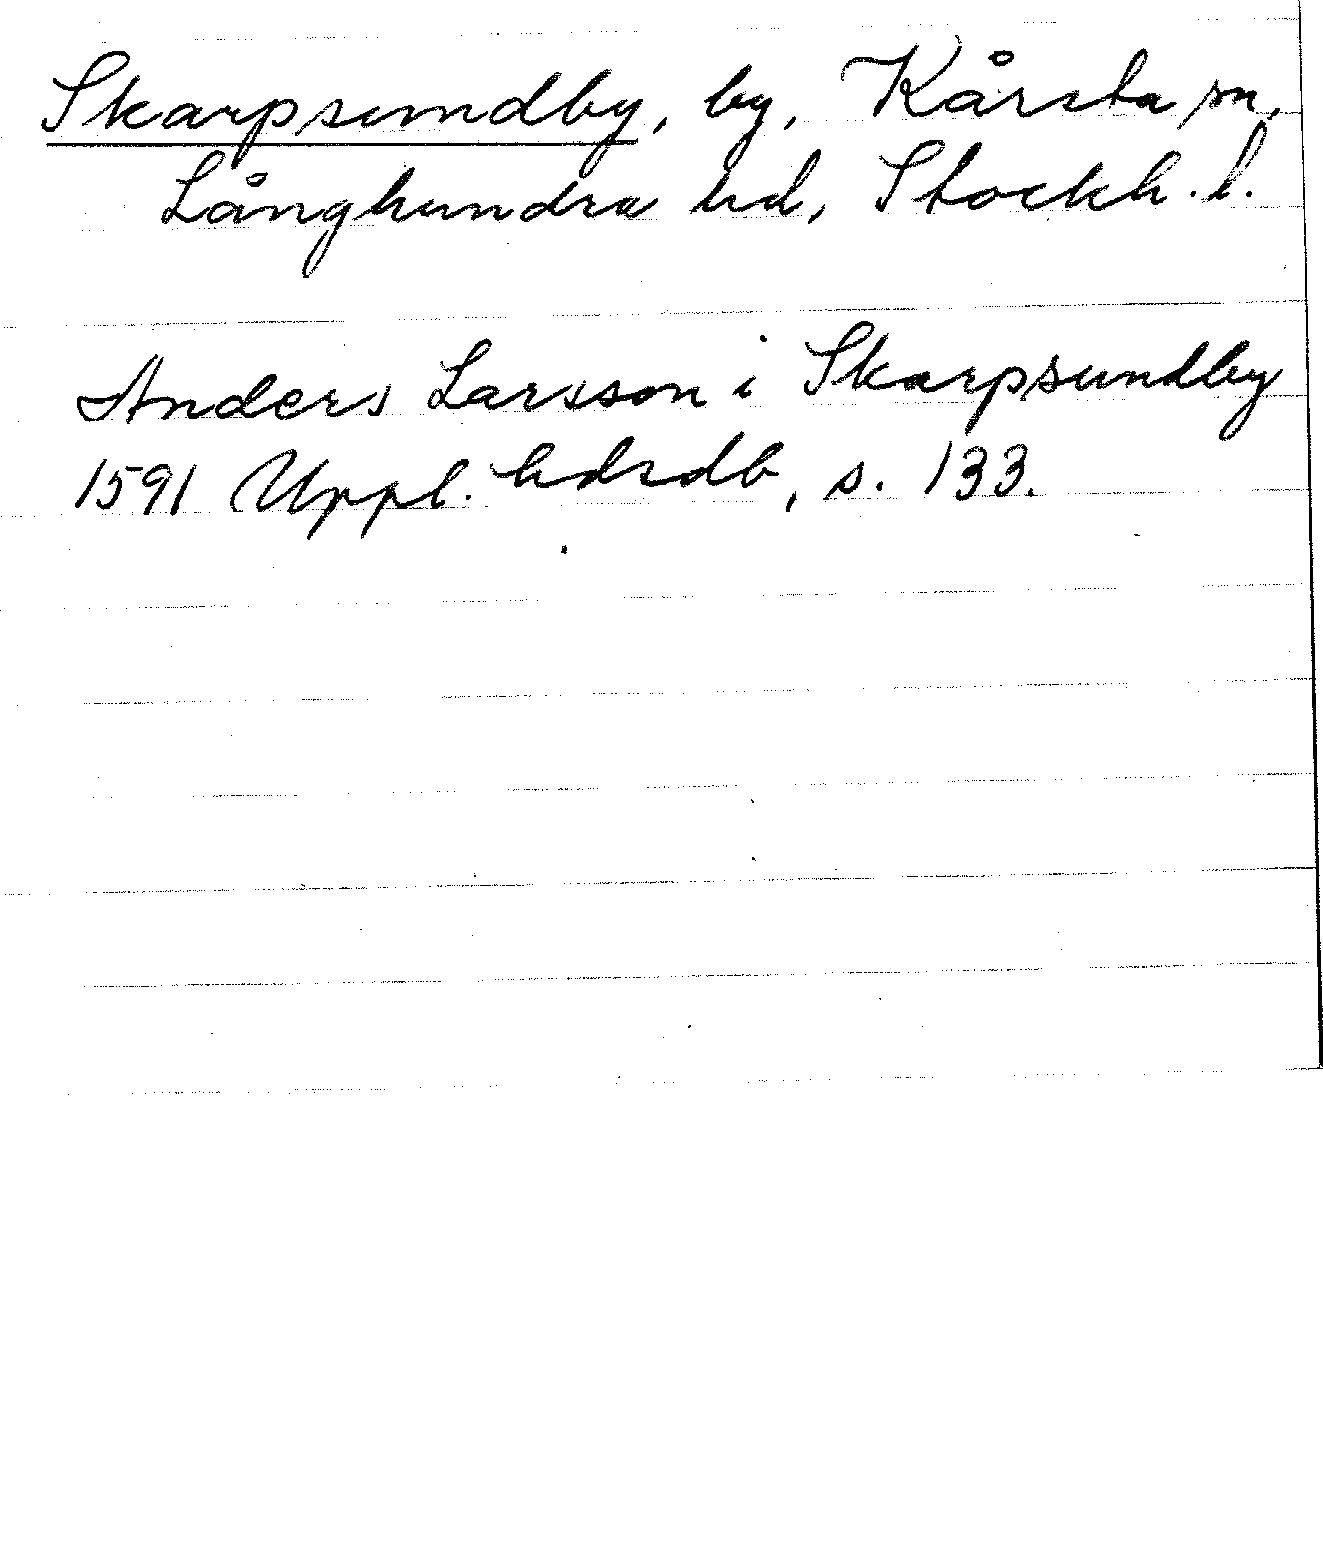 Skarpsundby, by, Kårsta sn,
Långhundra hd, Stockh. l.
Anders Larsson i Skarpsundby
1591 Uppl. hdsdb, s. 133.